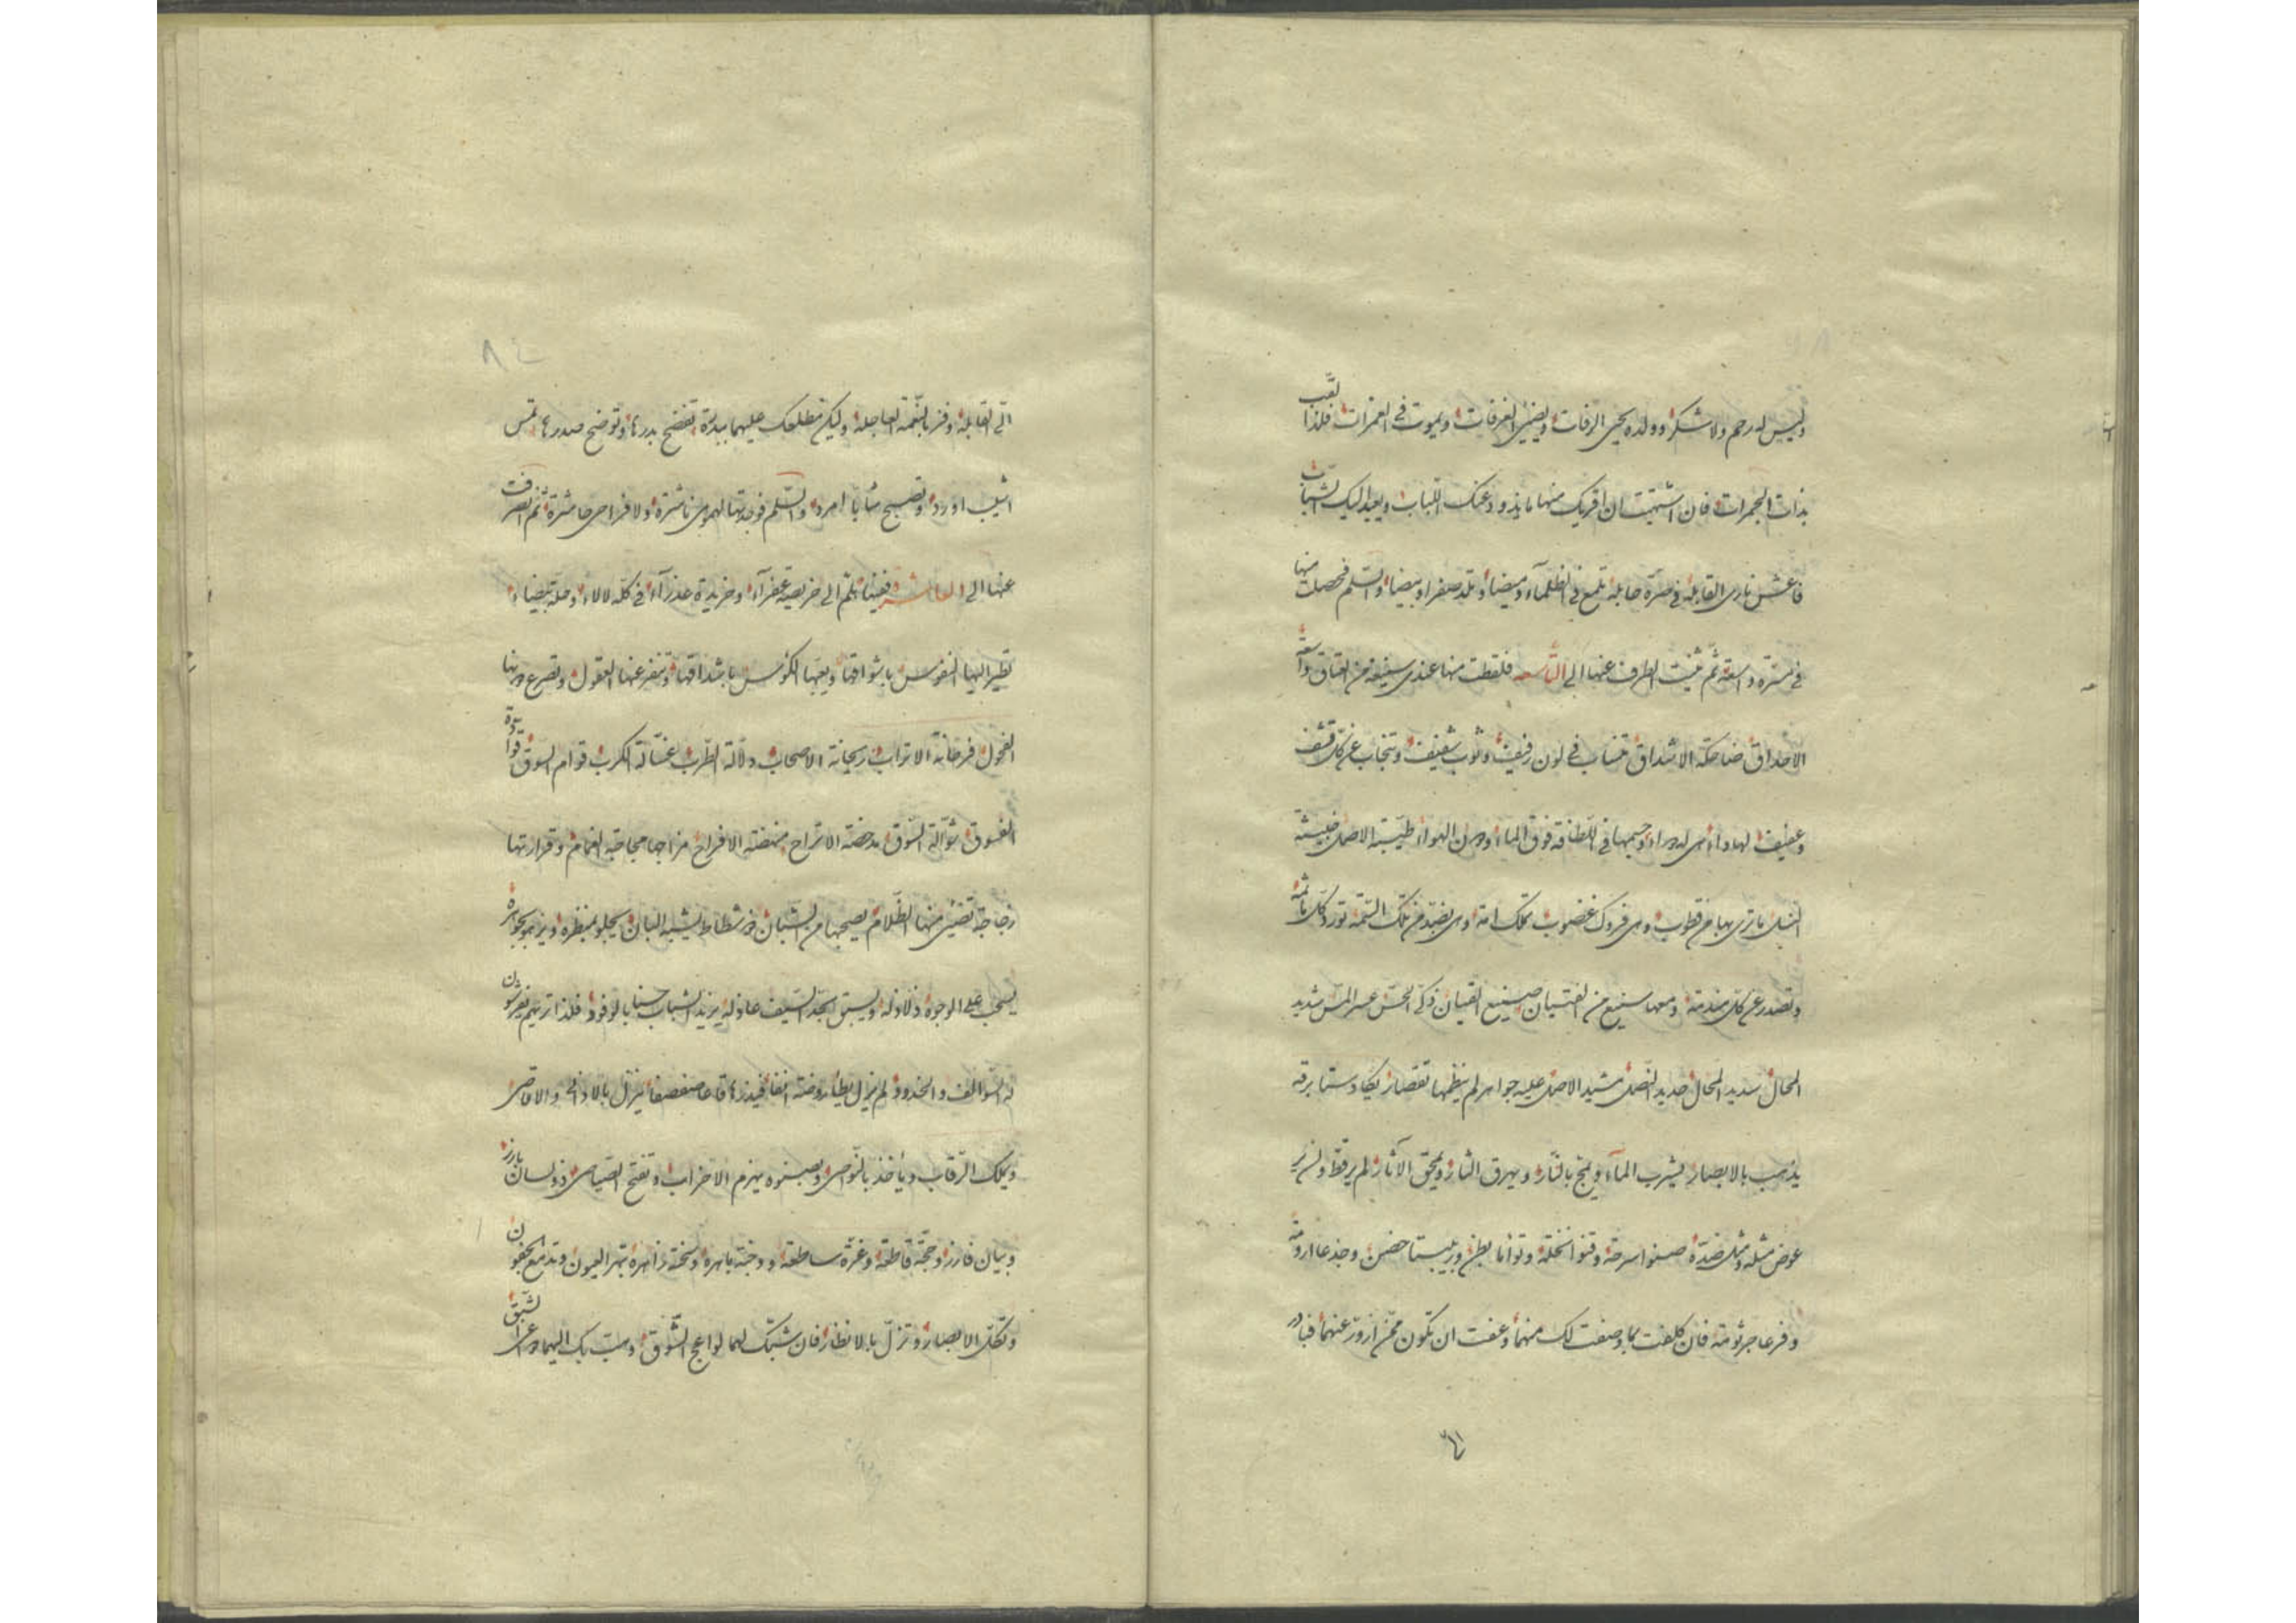 وليس له رحم ولا شكر وولده يحيى الرفات ويضيئ الغرفات ويموت في الغمرات فلذا لقب
بذات الجمرات فان اشتهيت ان اقريك منها ما يذود عنك اللباب ويعيد اليك الشباب
فاعش نارى القابلة في صرة حابلة تلمع في الظلماء وميضا وتلد صفرا وبيضا والسلم فحصلت منها
في مسرة واسعة ثم ثنيت الطرف عنها الى التاسعة فلقطت منها عندى سفيفة من العتاق واسعة
الاحداق ضاحكة الاشداق تنساب في لون رفيف وثوب شفيف وتنجاب عن كل قشف
وعفيف لها داء من له دواء وجسمها في اللطافة فوق الماء ودون الهواء طيبة الاصل خبيثة
النسل ما ترى بها من قطوب وهى فروك غضوب تملك امة وهى بضد من تلك السمة تورد كل نائمة
وتصدر عن كل مندمة ومعها سنيع من الفتيان صنيع القيان ذكى الحس عسر المس شديد
المحال سديد المحال حديد النصل مشيد الاصل عليه جواهر لم ينظمها تقصار يكاد سنا برقه
يذهب بالابصار يشرب الماء ويمج بالنار ويهرق الثار ويمحق الآثار لم ير قط ولن ير
عوض مثله ومثل ضده صنوا سرحة وقنوا نخلة وتوأما بطن وربيبتا حضن وجذعا ارومة
وفرعا جرثومة فان كلفت بما وصفت لك منهما وعفت ان تكون ممن ازور عنهما فبادر
٦١
٨٢
الى القابلة وفز بالنعمة العاجلة وليكن تطلعك عليهما ببدرة تفتضح بدرها وتوضح صدرها تمس
اشيب اورد وتصبح شابا امرد والسلم فوجدتها لهمومى ناشرة ولا فراحى حاشرة ثم انصرفت
عنها الى العاشرة فغنتا هلم الى خريصة عفراء وخريدة عذراء في كلة لالاء وحلة بيضاء
تطير اليها النفوس باشواقها ويعبها الكؤس باشداقها وتنفر عنها العقول وتصرع دونها
الفحول فرحانة الاتراب ريحانة الاصحاب دلالة الطرب غسالة الكرب قوام السوق قوادة
الفسوق شوالة السوق مدحضة الاتراح منهضة الافراح مزاجها مجاجة الغمام وقرارتها
زجاجة تضيئ منها الظلام يصحبها من الشبان ذو شطاط يشبه البان يحلو بمنظره ويزهو بجوهره
يسحب على الوجوه ذلاذله ويسبق بحد السيف عاذله يزيد الشباب حسنا بالوفود فلذا تريهم يفرشون
له السوالف والخدود لم يزل يطأ روضة انفا فيذرها قاعا صفصفا ينزل بالادانى والاقاصى
ويملك الرقاب ويأخذ بالنواصى وبصنوه يهزم الاحزاب وتفتح الصياصى ذو لسان بارز
وبيان فارز وحجة قاطعة وغرة ساطعة ووجنة باهرة وسحنة زاهرة تبهر العيون وتدمع الجفون
وتكل الابصار وتزل بالانظار فان شبك لهما لواعج الشوق وهبت بك اليهما دواعى الشبق